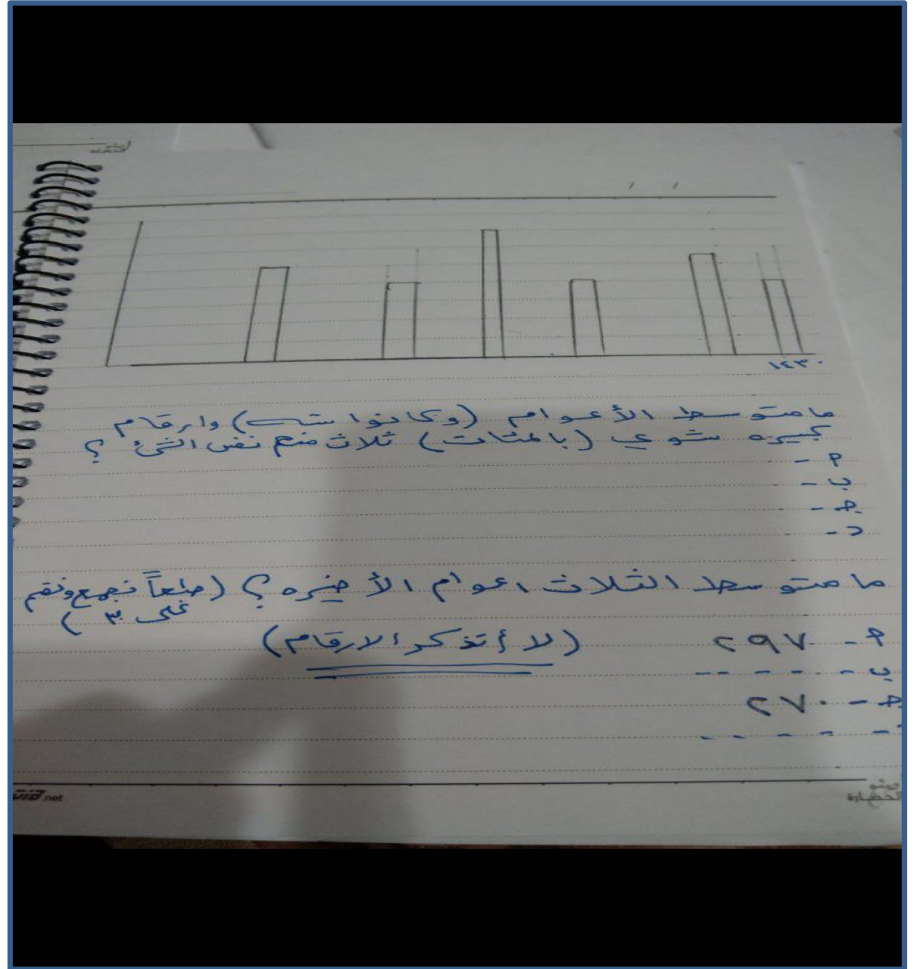 ١٤٣٠
ما متوسط الأعوام (وكانوا سته) وارقام
كبيره شوي (بالمئات) ثلاث منهم نفس الشئ ؟
أ -
ب -
جـ -
د -
ما متوسط الثلاث اعوام الأخيره ؟ (طبعاً نجمع ونقسم
على ٣ )
(لا أتذكر الارقام)
أ - ٢٩٧
ب - - - - -
جـ - ٢٧٠
- - - - -